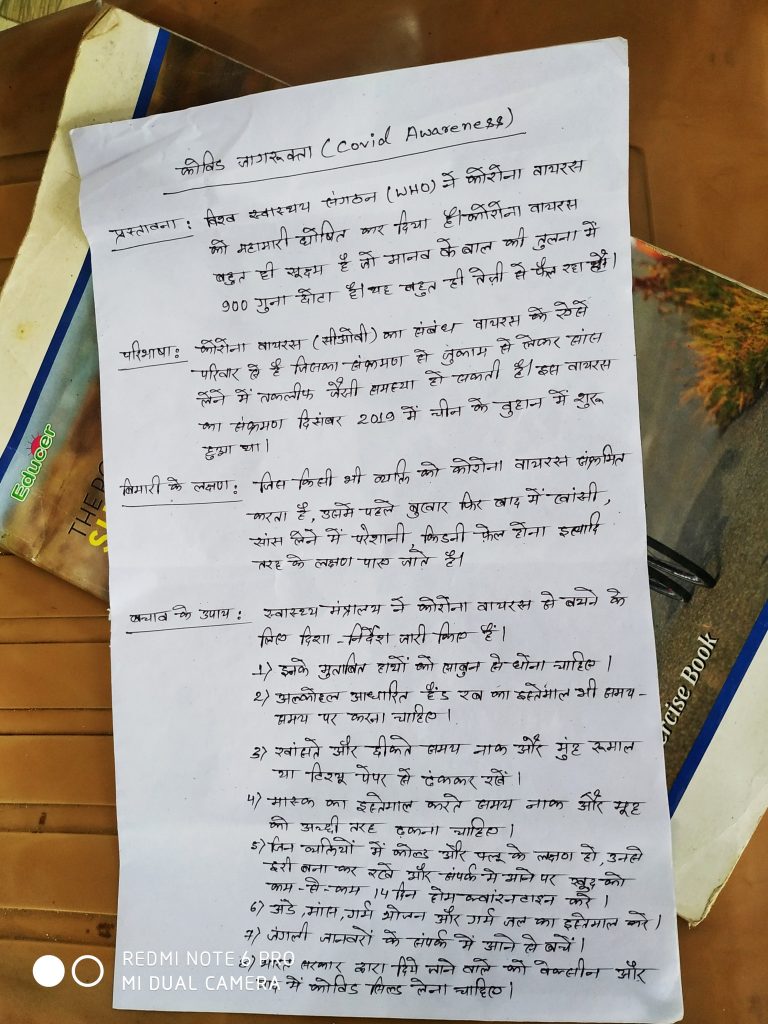 कोविड जागरूकता (Covid Awareness)
प्रस्तावना : विश्व स्वास्थय संगठन (WHO) ने कोरोना वायरस
को महामारी घोषित कर दिया है। कोरोना वायरस
बहुत ही सूक्ष्म है जो मानव के बाल की तुलना में
900 गुना छोटा है। यह बहुत ही तेज़ी से फैल रहा है।
परिभाषा : कोरोना वायरस (सीओवी) का संबंध वायरस के ऐसे
परिवार से है जिसका संक्रमण से जुकाम से लेकर सांस
लेने में तकलीफ जैसी समस्या हो सकती है। इस वायरस
का संक्रमण दिसंबर 2019 में चीन के वुहान में शुरू
हुआ था।
बिमारी के लक्षण : जिस किसी भी व्यक्ति को कोरोना वायरस संक्रमित
करता है, उसमें पहले बुखार फिर बाद में खांसी,
सांस लेने में परेशानी, किडनी फ़ेल होना इत्यादि
तरह के लक्षण पाए जाते है।
बचाव के उपाय : स्वास्थ्य मंत्रालय ने कोरोना वायरस से बचने के
लिए दिशा-निर्देश जारी किए हैं।
1) इनके मुताबित हाथों को साबुन से धोना चाहिए।
2) अल्कोहल आधारित हैंड रब का इस्तेमाल भी समय-
समय पर करना चाहिए।
3) खांसते और छीकते समय नाक और मुंह रूमाल
या टिश्यू पेपर से ढंककर रखें।
4) मास्क का इस्तेमाल करते समय नाक और मूह
को अच्छी तरह ढ़कना चाहिए।
5) जिन व्यक्तियों में कोल्ड और फ्लू के लक्षण हो, उनसे
दूरी बना कर रखें और संपर्क मे आने पर खूद को
कम-से-कम 14 दिन होम क्वांरनटाइन करे।
6) अंडे, मांस, गर्म भोजन और गर्म जल का इस्तेमाल करे।
7) जंगली जानवरों के संपर्क में आने से बचें।
8) भारत सरकार द्वारा दिये जाने वाले को वेक्सीन और
बाद में कोविड सिल्ड लेना चाहिए।
Educer
THE
Exercise Book
REDMI NOTE 6 PRO
MI DUAL CAMERA